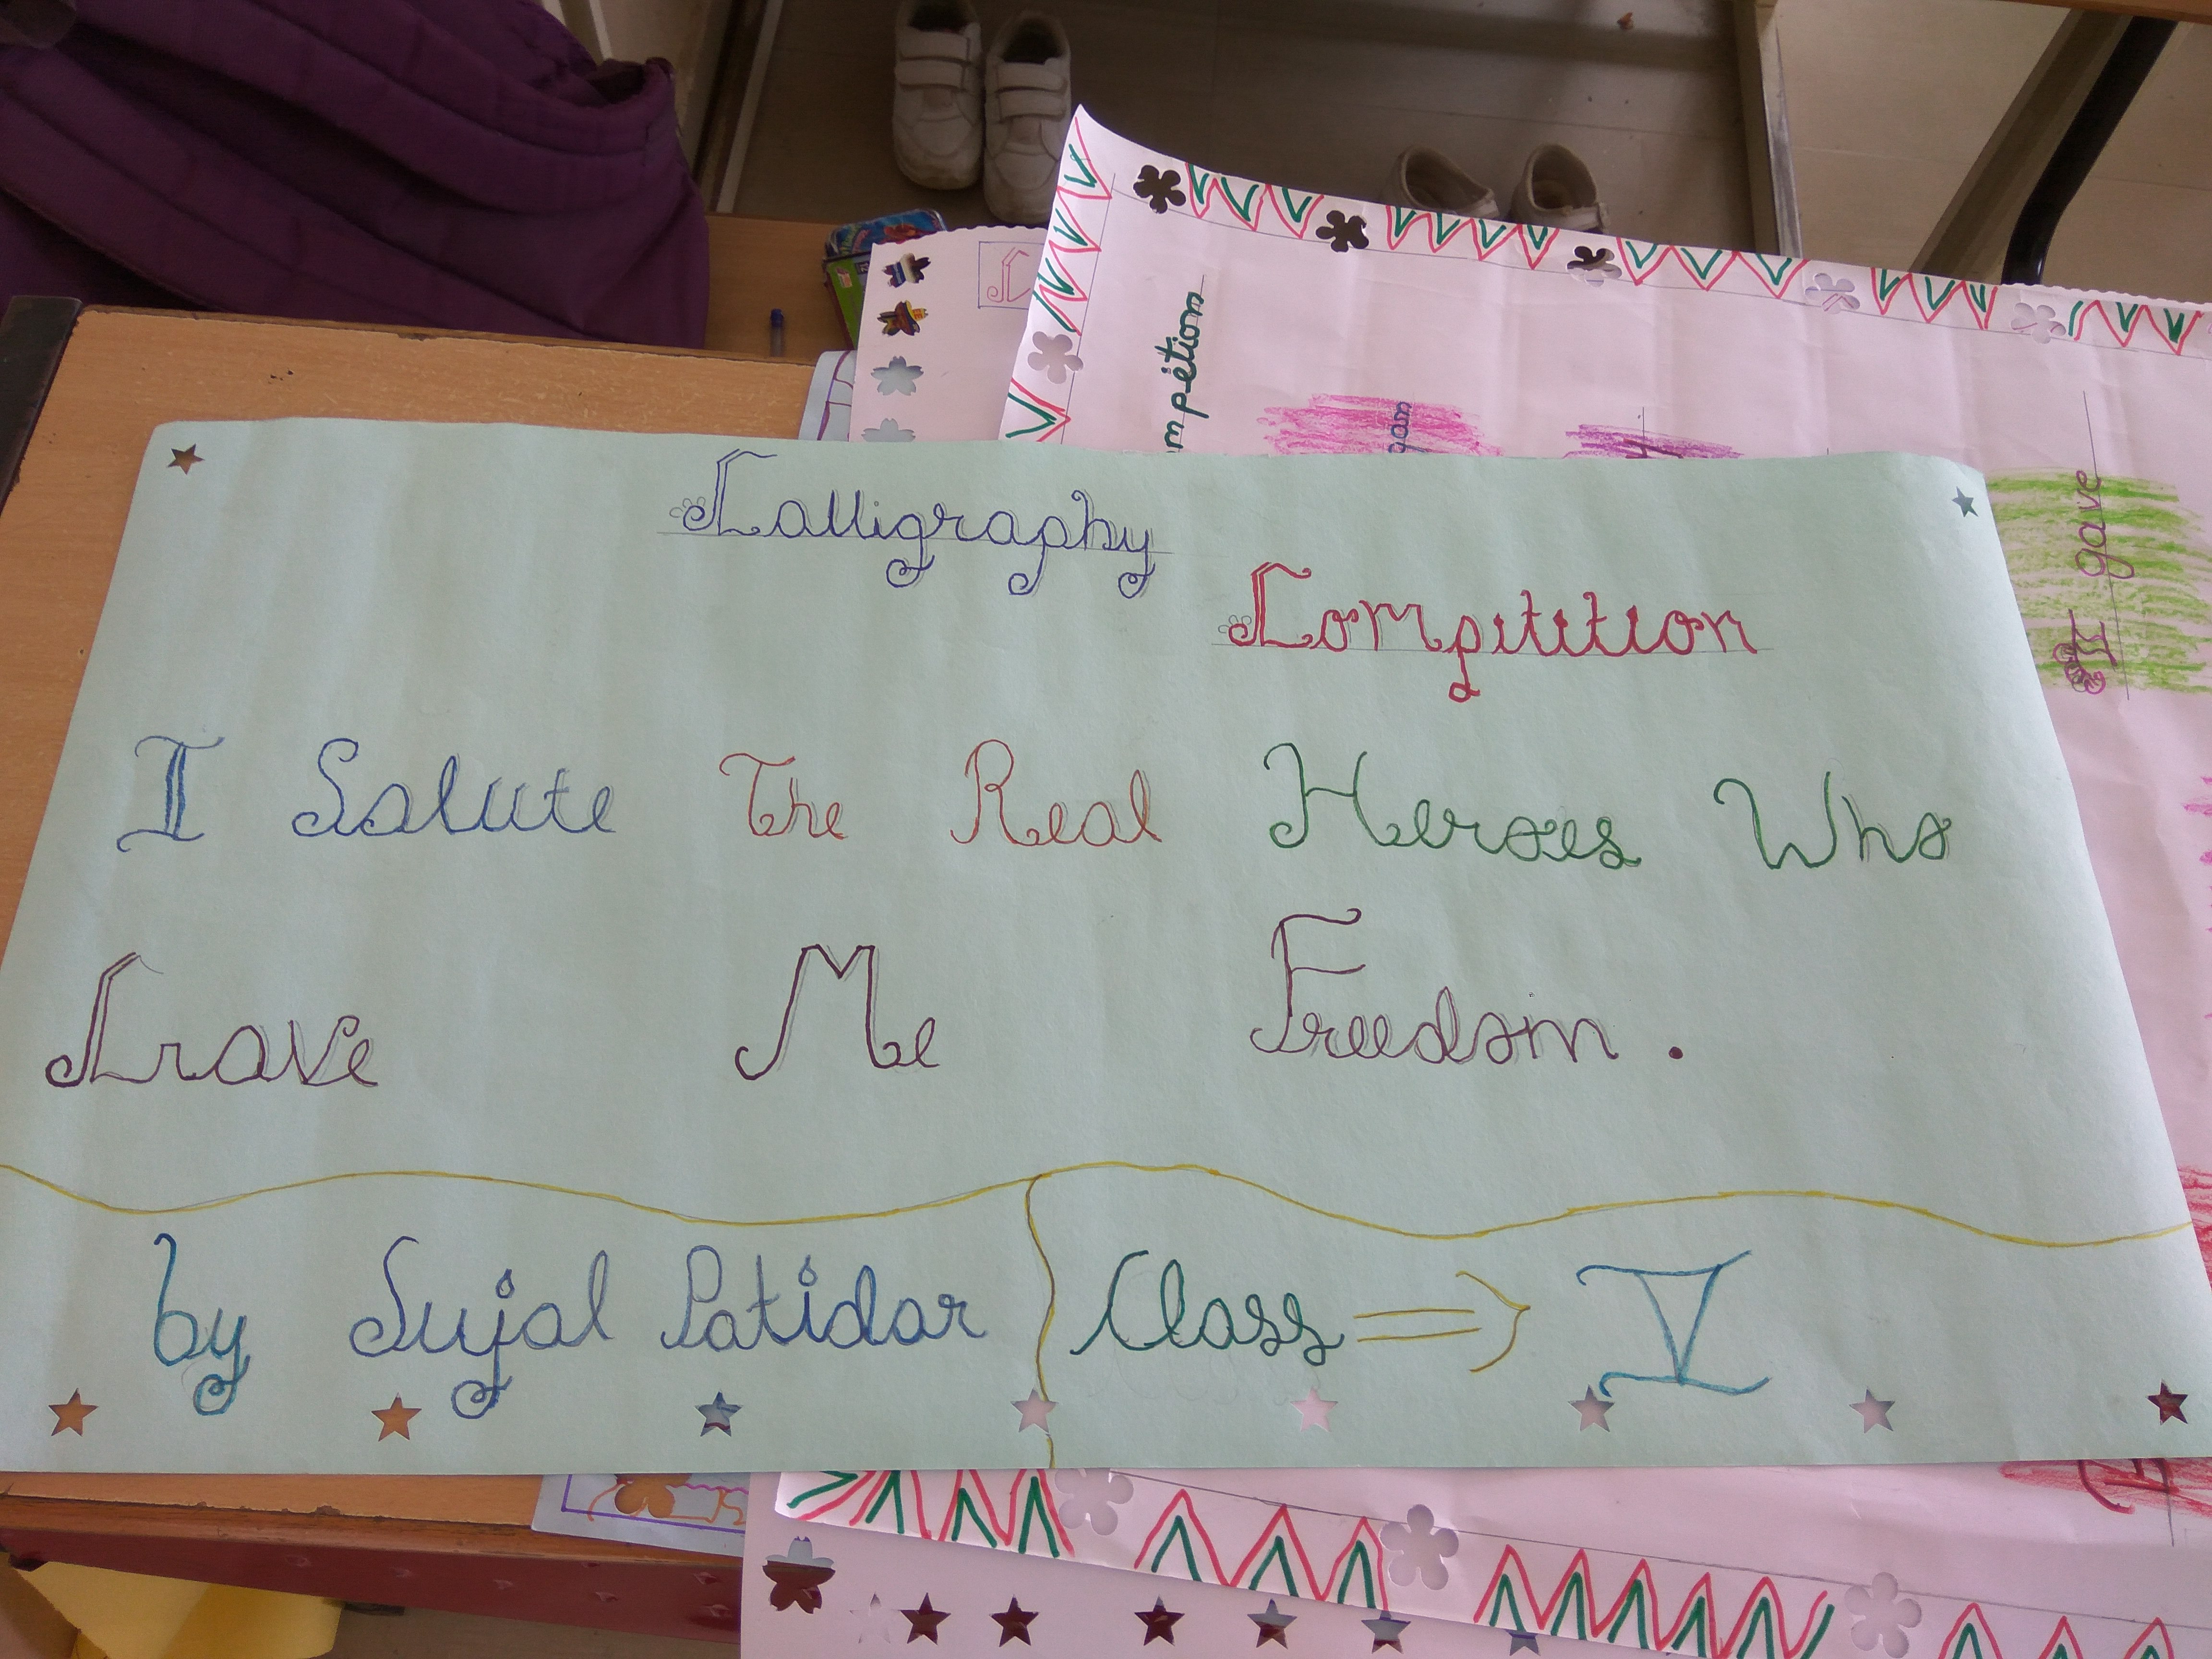 Calligraphy
Compitition
I Salute The Real Heroes Who
Grave Me Freedom.
by Sujal Patidar
Class ⇒ V
mpétion
I gave